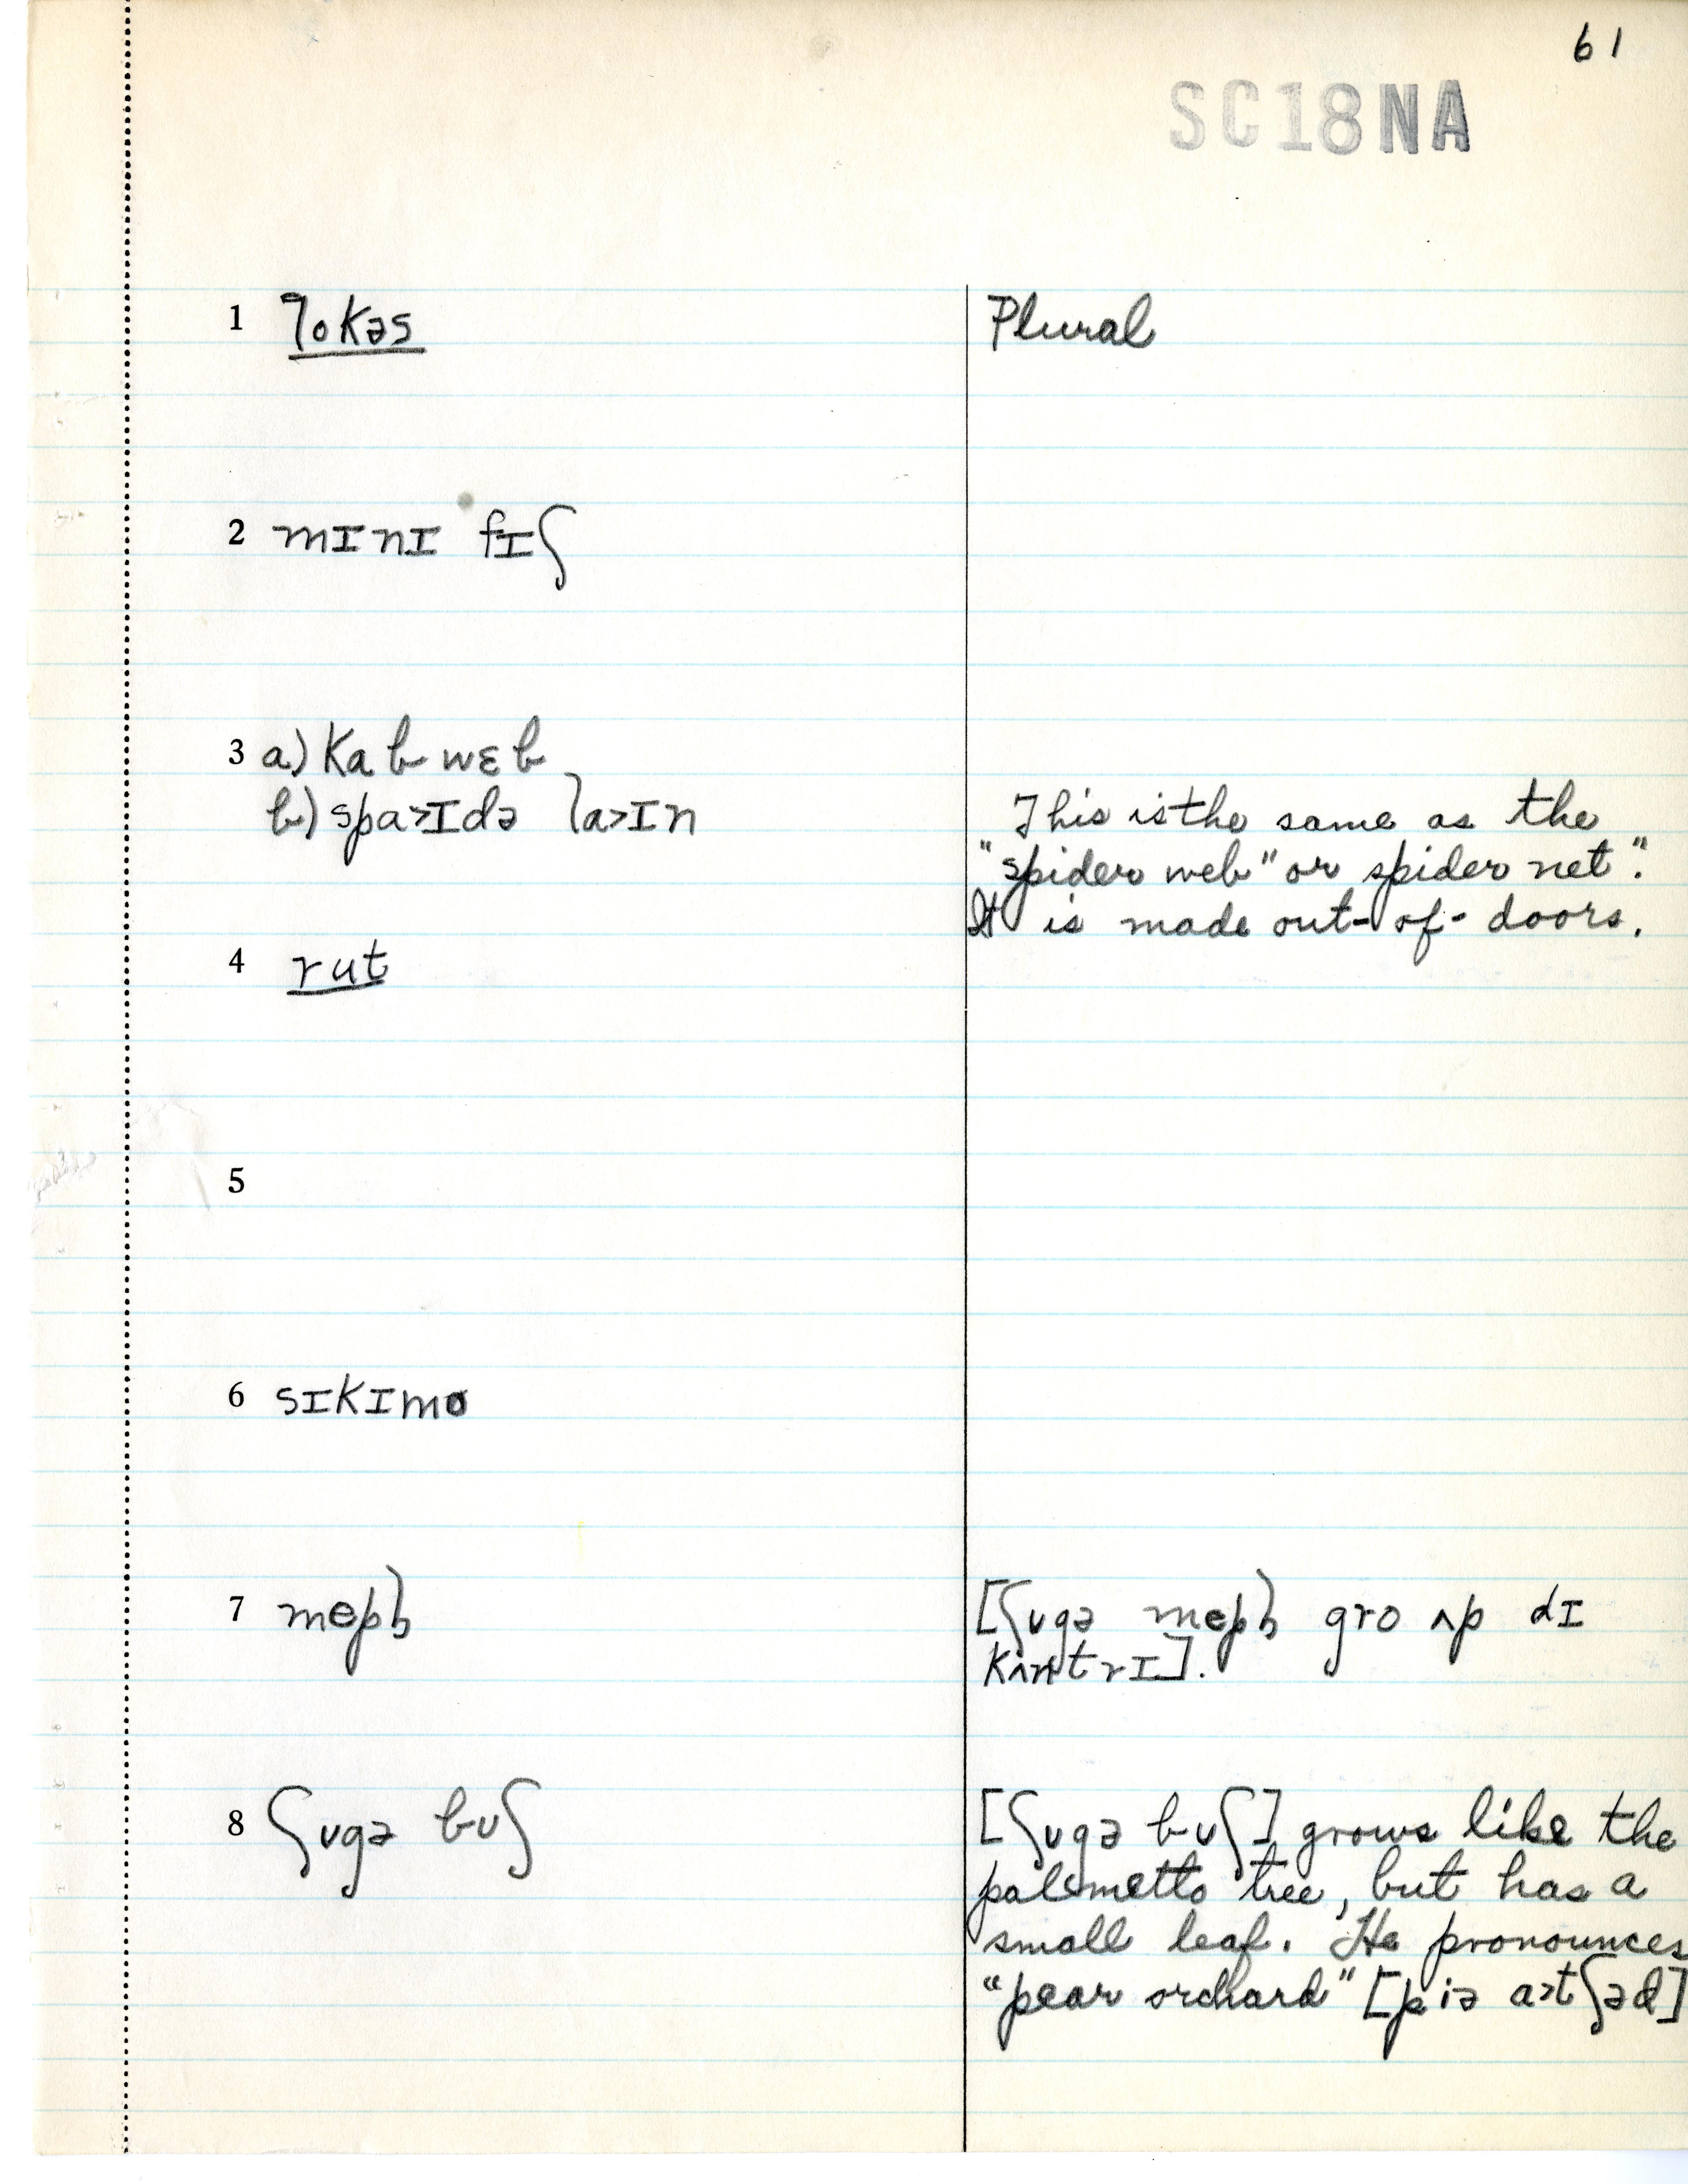 61
SC18NA
1 lokəs
Plural
2 mɪnɪ fɪʃ
3 a) kab wɛb
b) spa>ɪdə la>ɪn
This is the same as the
"spider web" or spider net".
It is made out-of-doors.
4 rut
5
6 sɪkɪmo
7 mepḥ
[ʃʊgə mepḥ gro ʌp dɪ
kʌntrɪ].
8 ʃʊgə bʊʃ
[ʃʊgə bʊʃ] grows like the
palmetto tree, but has a
small leaf. He pronounces
"pear orchard" [piə a>tʃəd]